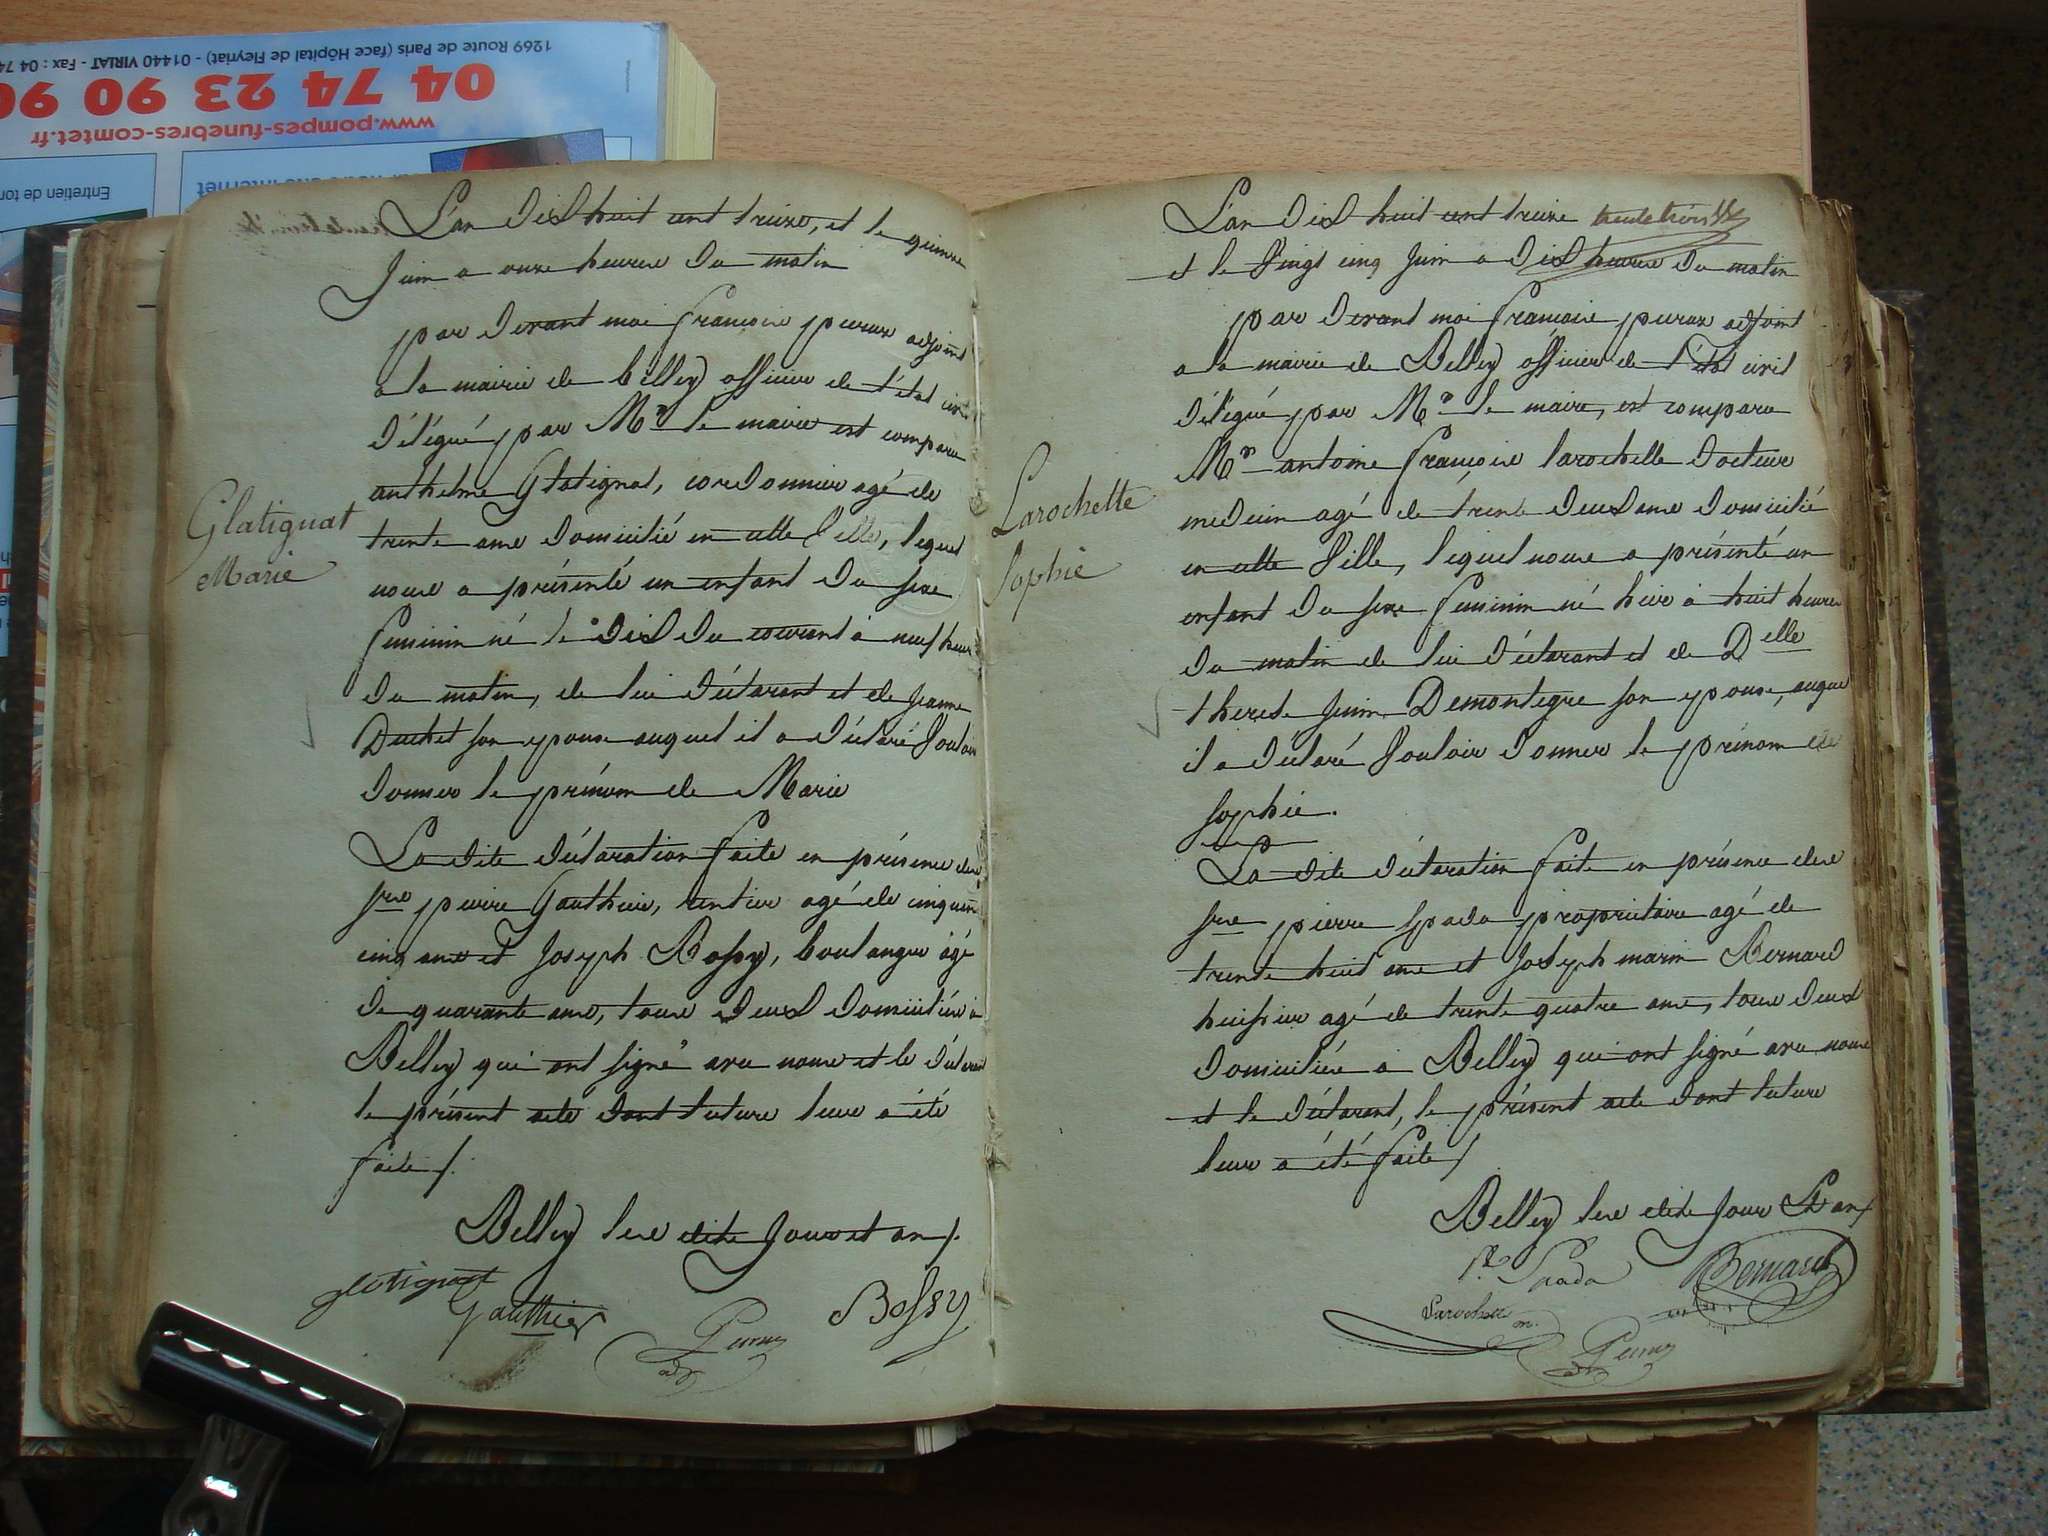 1269 Route de Paris (face Hôpital de Fleyriat) - 01440 VIRIAT - Fax : 04 74
04 74 23 90 90
www.pompes-funebres-comtet.fr
Entretien de tom
internet
L'an dix huit cent treize, et le quinze
Juin a onze heures du matin
par devant moi françois peroux adjoint
a la mairie de belley officier de l'état civil
délégué par Mr le maire est comparu
anthelme Glatignat, cordonnier agé de
trente ans domicilié en cette ville, lequel
nous a présenté un enfant du sexe
feminin né le dix du courant à neuf heures
du matin, de lui déclarant et de jeanne
Duchet son epouse auquel il a déclaré vouloir
donner le prénom de Marie
La dite déclaration faite en présence des
srs pierre Gauthier, rentier agé de cinquante
cinq ans et Joseph Bossy, boulanger âgé
de quarante ans, tous deux domiciliés à
Belley qui ont signé avec nous et le déclarant
le présent acte dont lecture leur a été
faite /.
Belley les dits jour et an /.
Glatignat
Marie
glatignat
Gauthier
Bossy
L'an dix huit cent treize
et le vingt cinq Juin a dix heures du matin
par devant moi françois peroux adjoint
a la mairie de Belley officier de l'état civil
délégué par Mr le maire, est comparu
Mr antoine françois larochette docteur
medecin agé de trente deux ans domicilié
en cette ville, lequel nous a présenté un
enfant du sexe feminin né hier à huit heures
du matin de lui déclarant et de Delle
therese Demontegre son epouse, auquel
il a déclaré vouloir donner le prénom de
sophie.
La dite déclaration faite en présence des
srs pierre spada propriétaire agé de
trente huit ans et joseph marin Bernard
huissier agé de trente quatre ans, tous deux
domiciliés a Belley qui ont signé avec nous
et le déclarant, le présent acte dont lecture
leur a été faite /
Belley les dits jour et an /
Larochette
Sophie
Spada
Bernard
Larochette